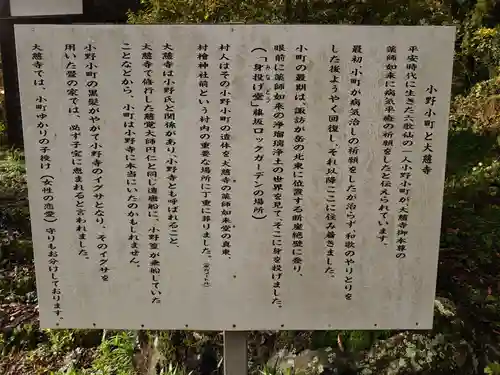 小野小町と大慈寺
平安時代に生きた六歌仙の一人小野小町が、大慈寺御本尊の
薬師如来に病気平癒の祈願をしたと伝えられています。
最初、小町が病気治しの祈願をしたが治らず、和歌のやりとりを
した後ようやく回復し、それ以降ここに住み着きました。
小町の最期は、諏訪が岳の北東に位置する断崖絶壁に登り、
眼前に薬師如来の浄瑠璃浄土の世界を見て、そこに身を投げました。
(「身投げ堂」篠坂ロックガーデンの場所)
村人はその小野小町の遺体を大慈寺の薬師如来堂の真東、
村檜神社前という村内の重要な場所に丁重に葬りました。
大慈寺は小野氏と関係があり、小野寺とも呼ばれること、
大慈寺で修行した慈覚大師円仁と同じ遣唐船に、小野篁が乗船していた
ことなどから、小町は小野寺に本当にいたのかもしれません。
小野小町の黒髪がやがて小野寺のイグサとなり、そのイグサを
用いた畳の家では、必ず子宝に恵まれると言われました。
大慈寺では、小町ゆかりの手授け(女性の恋愛)守りもお分けしております。